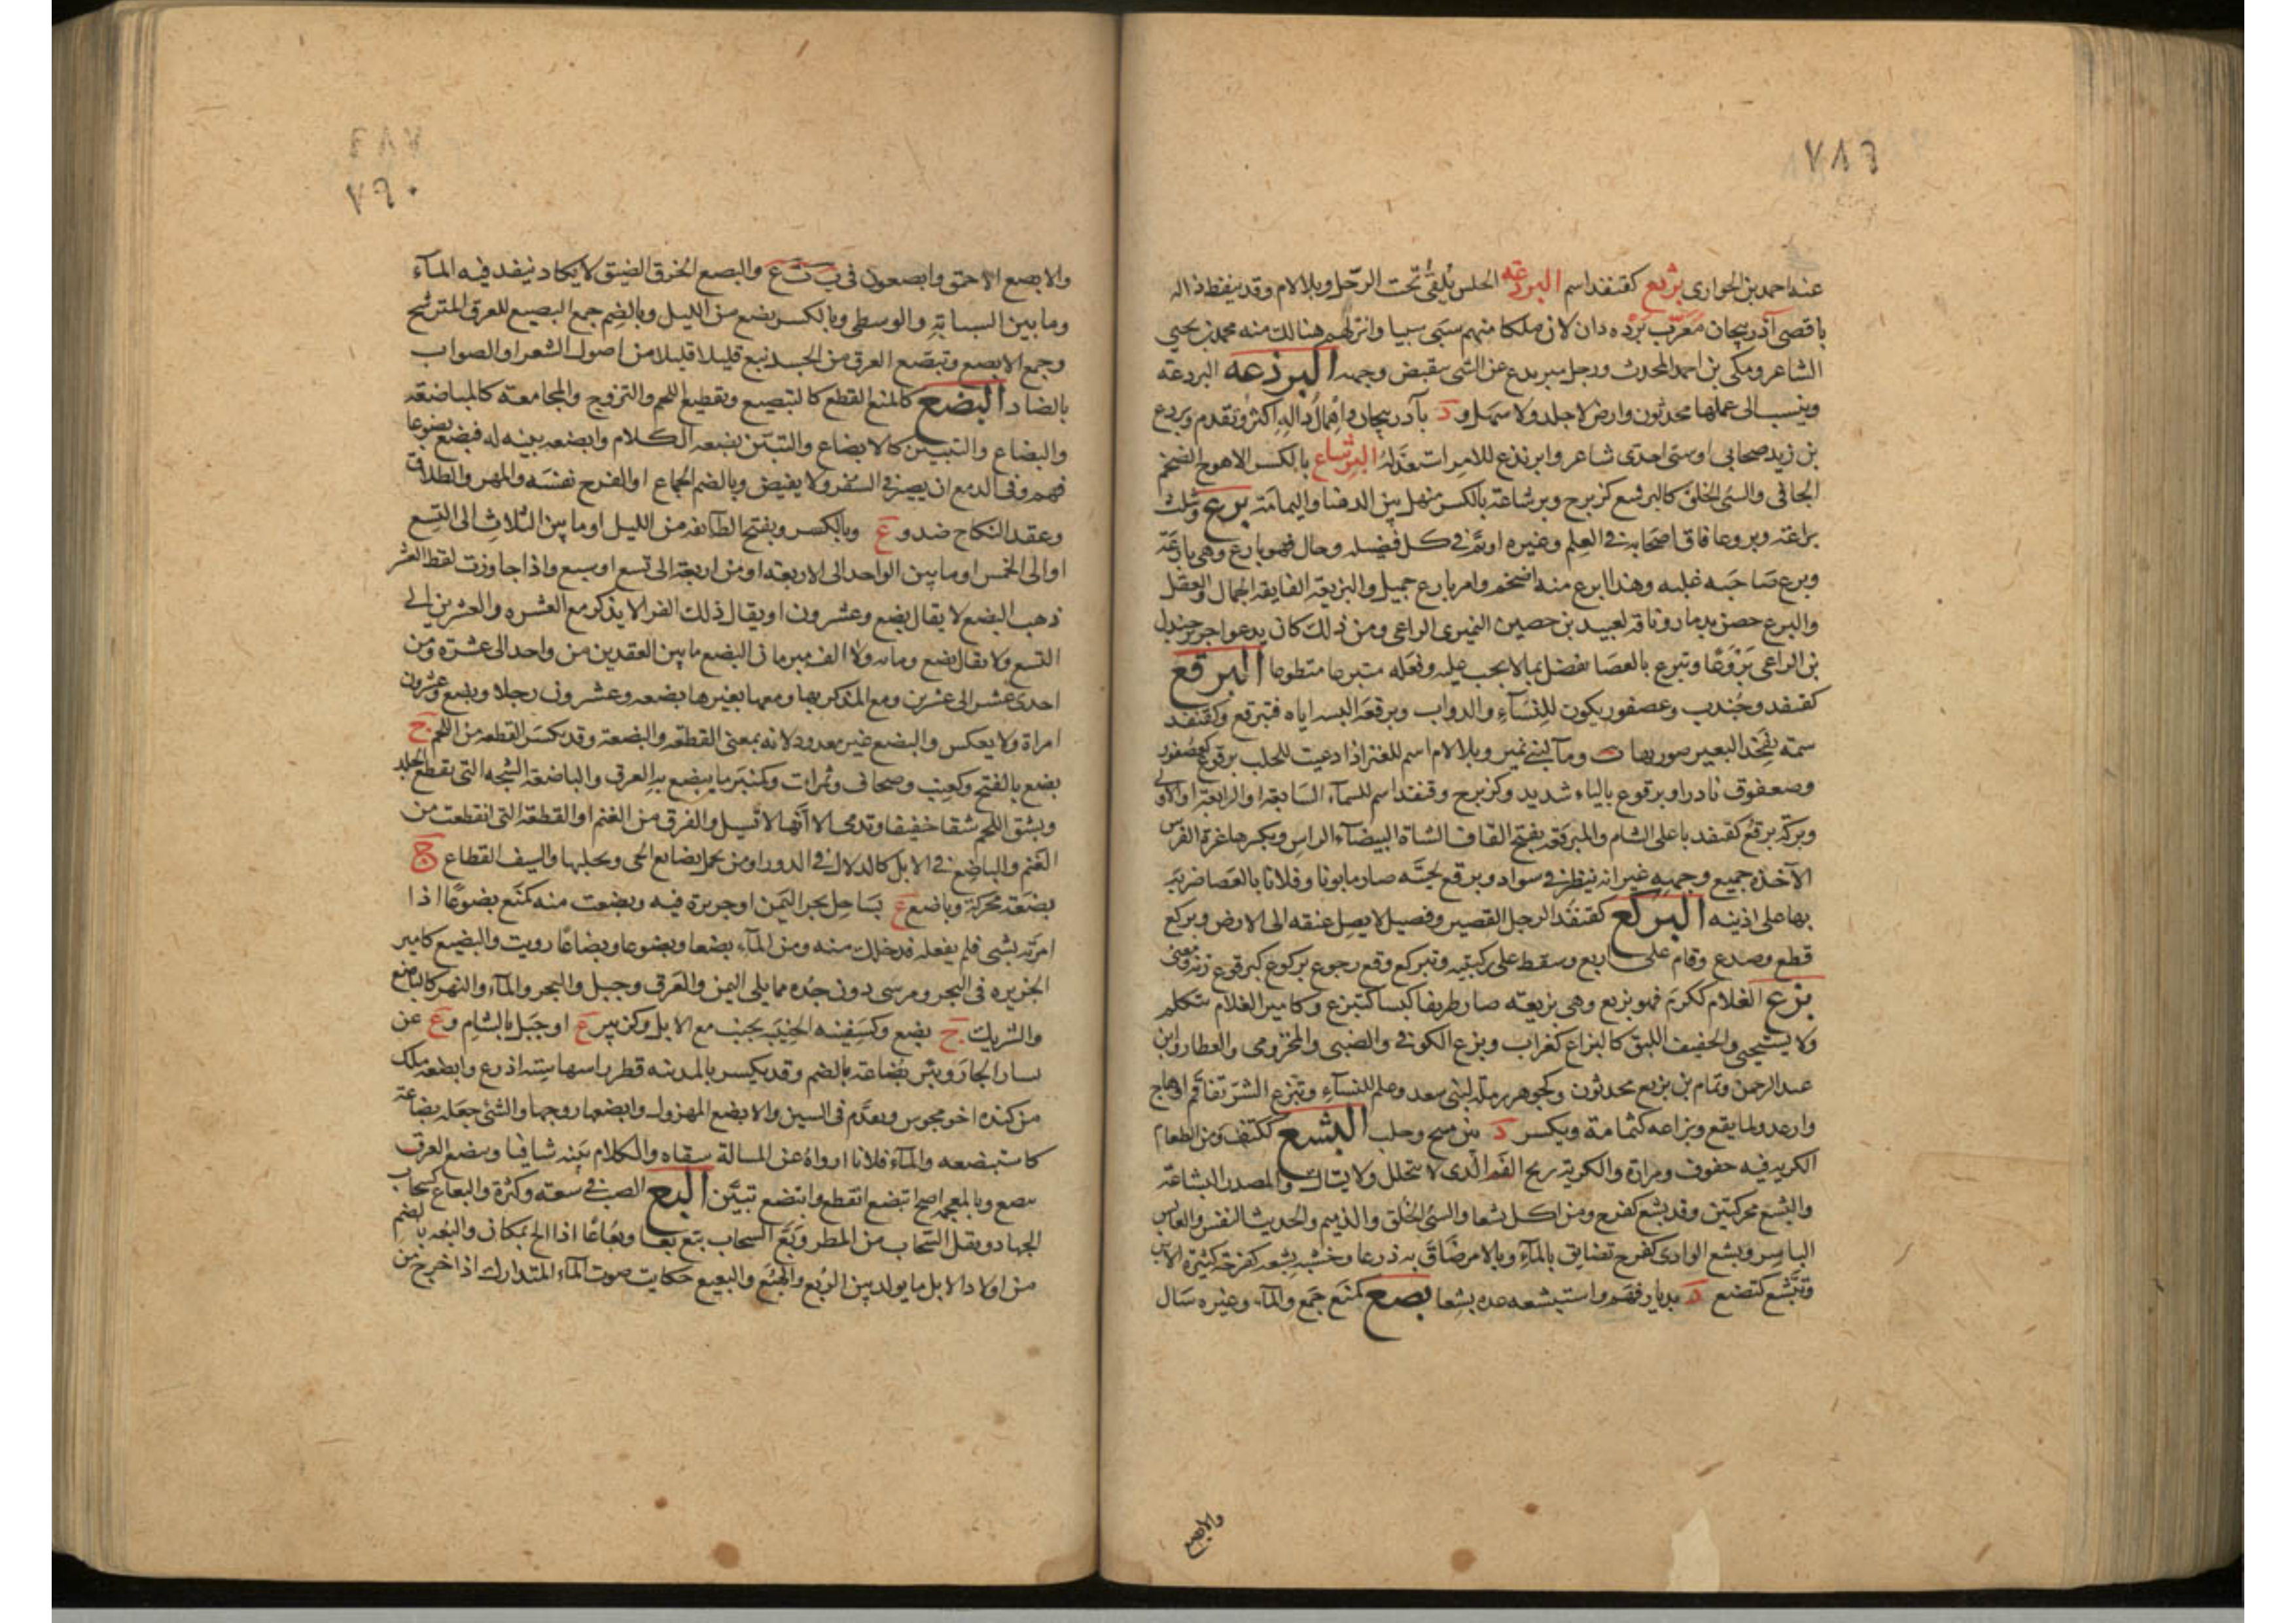 ٧٨٩
عنه احمد بن الحوارى برثع كقنفذ اسم البردعه الحلس يلقى تحت الرحل وبلا لام وقد ينقط داله
باقصى آذربيجان معرب برده دان لان ملكا منهم سبى سبيا وانزلهم هنالك منه محمد بن يحيى
الشاعر ومكى بن احمد المحدث ورجل مبردع عن الشى منقبض وجهه البرذعه البردعة
وينسب الى عملها محدثون وارض لا جلد ولا سهل و د بآذربيجان واهمال داله اكثر وتقدم وبردع
بن زيد صحابى اوسى احدى شاعر وابرنذع للامر استعد له البرشاع بالكسر الاهوج الضخم
الجافى والسئ الخلق كالبرشع كزبرج وبرشاعة بالكسر منهل بين الدهنا واليمامة برع ويثلث
براعة وبروعا فاق اصحابه فى العلم وغيره او تم فى كل فضيله وجمال فهو بارع وهى بارعة
وبرع صاحبه غلبه وهذا ابرع منه اضخم وامر بارع جميل والبريعة الفايقة الجمال والعقل
والبرع حصن بذمار وناقة لعبيد بن حصين النميرى الراعى ومن ذلك كان يدعو جرير جندل
بن الراعى بروعا وتبرع بالعصا تفضل بما لا يجب عليه وفعله متبرعا متطوعا البرقع
كقنفذ وجندب وعصفور يكون للنساء والدواب وبرقعه البسه اياه فتبرقع وكقنفذ
سمة بفخذ البعير صورتها وماء لبنى نمير وبلا لام اسم للعنز اذا دعيت للحلب برقوع كعصفور
وصعفوق نادر او يرقوع بالياء شديد وكزبرج وقنفذ اسم للسماء السابعة او الرابعة او الاولى
وبركة برقع كقنفذ باعلى الشام والمبرقعة بفتح القاف الشاة البيضاء الراس وبكسرها غرة الفرس
الآخذة جميع وجهه غير انه ينظر فى سواد وبرقع لحيته صار مابونا وفلانا بالعصا ضربه
بها على اذنيه البركع كقنفذ الرجل القصير وفصيل لا يصل عنقه الى الارض وبركع
قطع وصرع وقام على اربع وسقط على ركبتيه وتبركع وقع رجوع بركوع كبرقوع زنة ومعنى
بزع الغلام ككرم فهو بزيع وهى بزيعة صار ظريفا كيسا كتبزع وكامير الغلام يتكلم
ولا يستحيى والخفيف اللبق كالبزاع كغراب وبزيع الكوفى والضبى والمخزومى والعطار وابن
عبد الرحمن وتمام بن بزيع محدثون وكجوهر رملة لبنى سعد وعلم للنساء وتبزع الشر تفاقم او هاج
وارعد ولما يقع وبزاعه كثمامة ويكسر د بين منبج وحلب البشع ككتف من الطعام
الكريه فيه حفوف ومرارة والكريه ريح الفم الذى لا يتخلل ولا يستاك والمصدر البشاعة
والبشع محركتين وقد بشع كفرح ومن اكل بشعا والسئ الخلق والذميم والخبيث النفس والعابس
الباسر وبشع الوادى كفرح تضايق بالماء وبالامر ضاق به ذرعا وخشبة بشعه كفرحة كثيرة الابن
وتبشع كتصنع د بديار فهم واستبشعه عده بشعا بصع كمنع جمع والماء وغيره سال
والابصع
٧٩٠
والابصع الاحمق وابصعون فى ب ت ع والبصع الخرق الضيق لا يكاد ينفد فيه الماء
وما بين السبابة والوسطى وبالكسر بضع من الليل وبالضم جمع البصيع للعرق المترشح
وجمع الابصع وتبصع العرق من الجسد نبع قليلا قليلا من اصول الشعر او الصواب
بالضاد البضع كالمنع القطع كالتبضيع وتقطيع اللحم والتزوج والمجامعة كالمباضعة
والبضاع والتبيين كالابضاع والتبين بضعه الكلام وابضعه بينه له فبضع بضوعا
فهم وفى الدمع ان يصير فى الشفر ولا يفيض وبالضم الجماع او الفرج نفسه والمهر والطلاق
وعقد النكاح ضد و ع وبالكسر ويفتح الطائفه من الليل او ما بين الثلاث الى التسع
او الى الخمس او ما بين الواحد الى الاربعه او من اربعة الى تسع او سبع واذا جاوزت لفظ العشر
ذهب البضع لا يقال بضع وعشرون او يقال ذلك الفرا لا يذكر مع العشره والعشرين الى
التسع ولا يقال بضع ومايه ولا الف مبرمان البضع ما بين العقدين من واحد الى عشرة ومن
احدى عشر الى عشرين ومع المذكر بها ومعها بغيرها بضعه وعشرون رجلا وبضع وعشرون
امراة ولا يعكس والبضع غير معدود لانه بمعنى القطعه والبضعة وقد يكسر القطعه من اللحم ج
بضع بالفتح وكعنب وصحاف وتمرات وكمنبر ما يبضع به العرق والباضعة الشجه التى يقطع الجلد
ويشق اللحم شقا خفيفا وتدمى الا انها لا تسيل والفرق من الغنم او القطعة التى انقطعت من
الغنم والباضع فى الابل كالدلال فى الدور او من يحمل بضايع الحى ويجلبها والسيف القطاع ج
بضعة محركة وباضع ع بساحل بحر اليمن او جزيرة فيه وبضعت منه كمنع بضوعا اذا
امرته بشى فلم يفعله فدخلك منه ومن الماء بضعا وبضوعا وبضاعا رويت والبضيع كامير
الجزيره فى البحر ومرسى دون جده مما يلى اليمن والعرق وجبل والبحر والماء والنمير كالباضع
والشريك ج بضع وكسفينه الجنيبة يجنب مع الابل وكزبير ع او جبل بالشام و ع عن
يسار الجار وبئر بضاعة بالضم وقد يكسر بالمدينه قطر راسها ستة اذرع وابضعه ملك
من كنده اخو مخوس وتقدم فى السين والابضع المهزول وابضعها زوجها والشئ جعله بضاعة
كاستبضعه والماء فلانا ارواه عن المسالة سقاه والكلام بينه شافيا وبضع العرق
تبصع وبالمعجمه اصح انبضع انقطع وابتضع تبين البع الصب فى سعته وكثرة والبعاع كسحاب
الجهاد وثقل السحاب من المطر وبع السحاب يبع بعا وبعاعا اذا الح بمكان والبعه بالضم
من اولاد الابل ما يولد بين الربع والهبع والبعبع حكايت صوت الماء المتدارك اذا خرج من